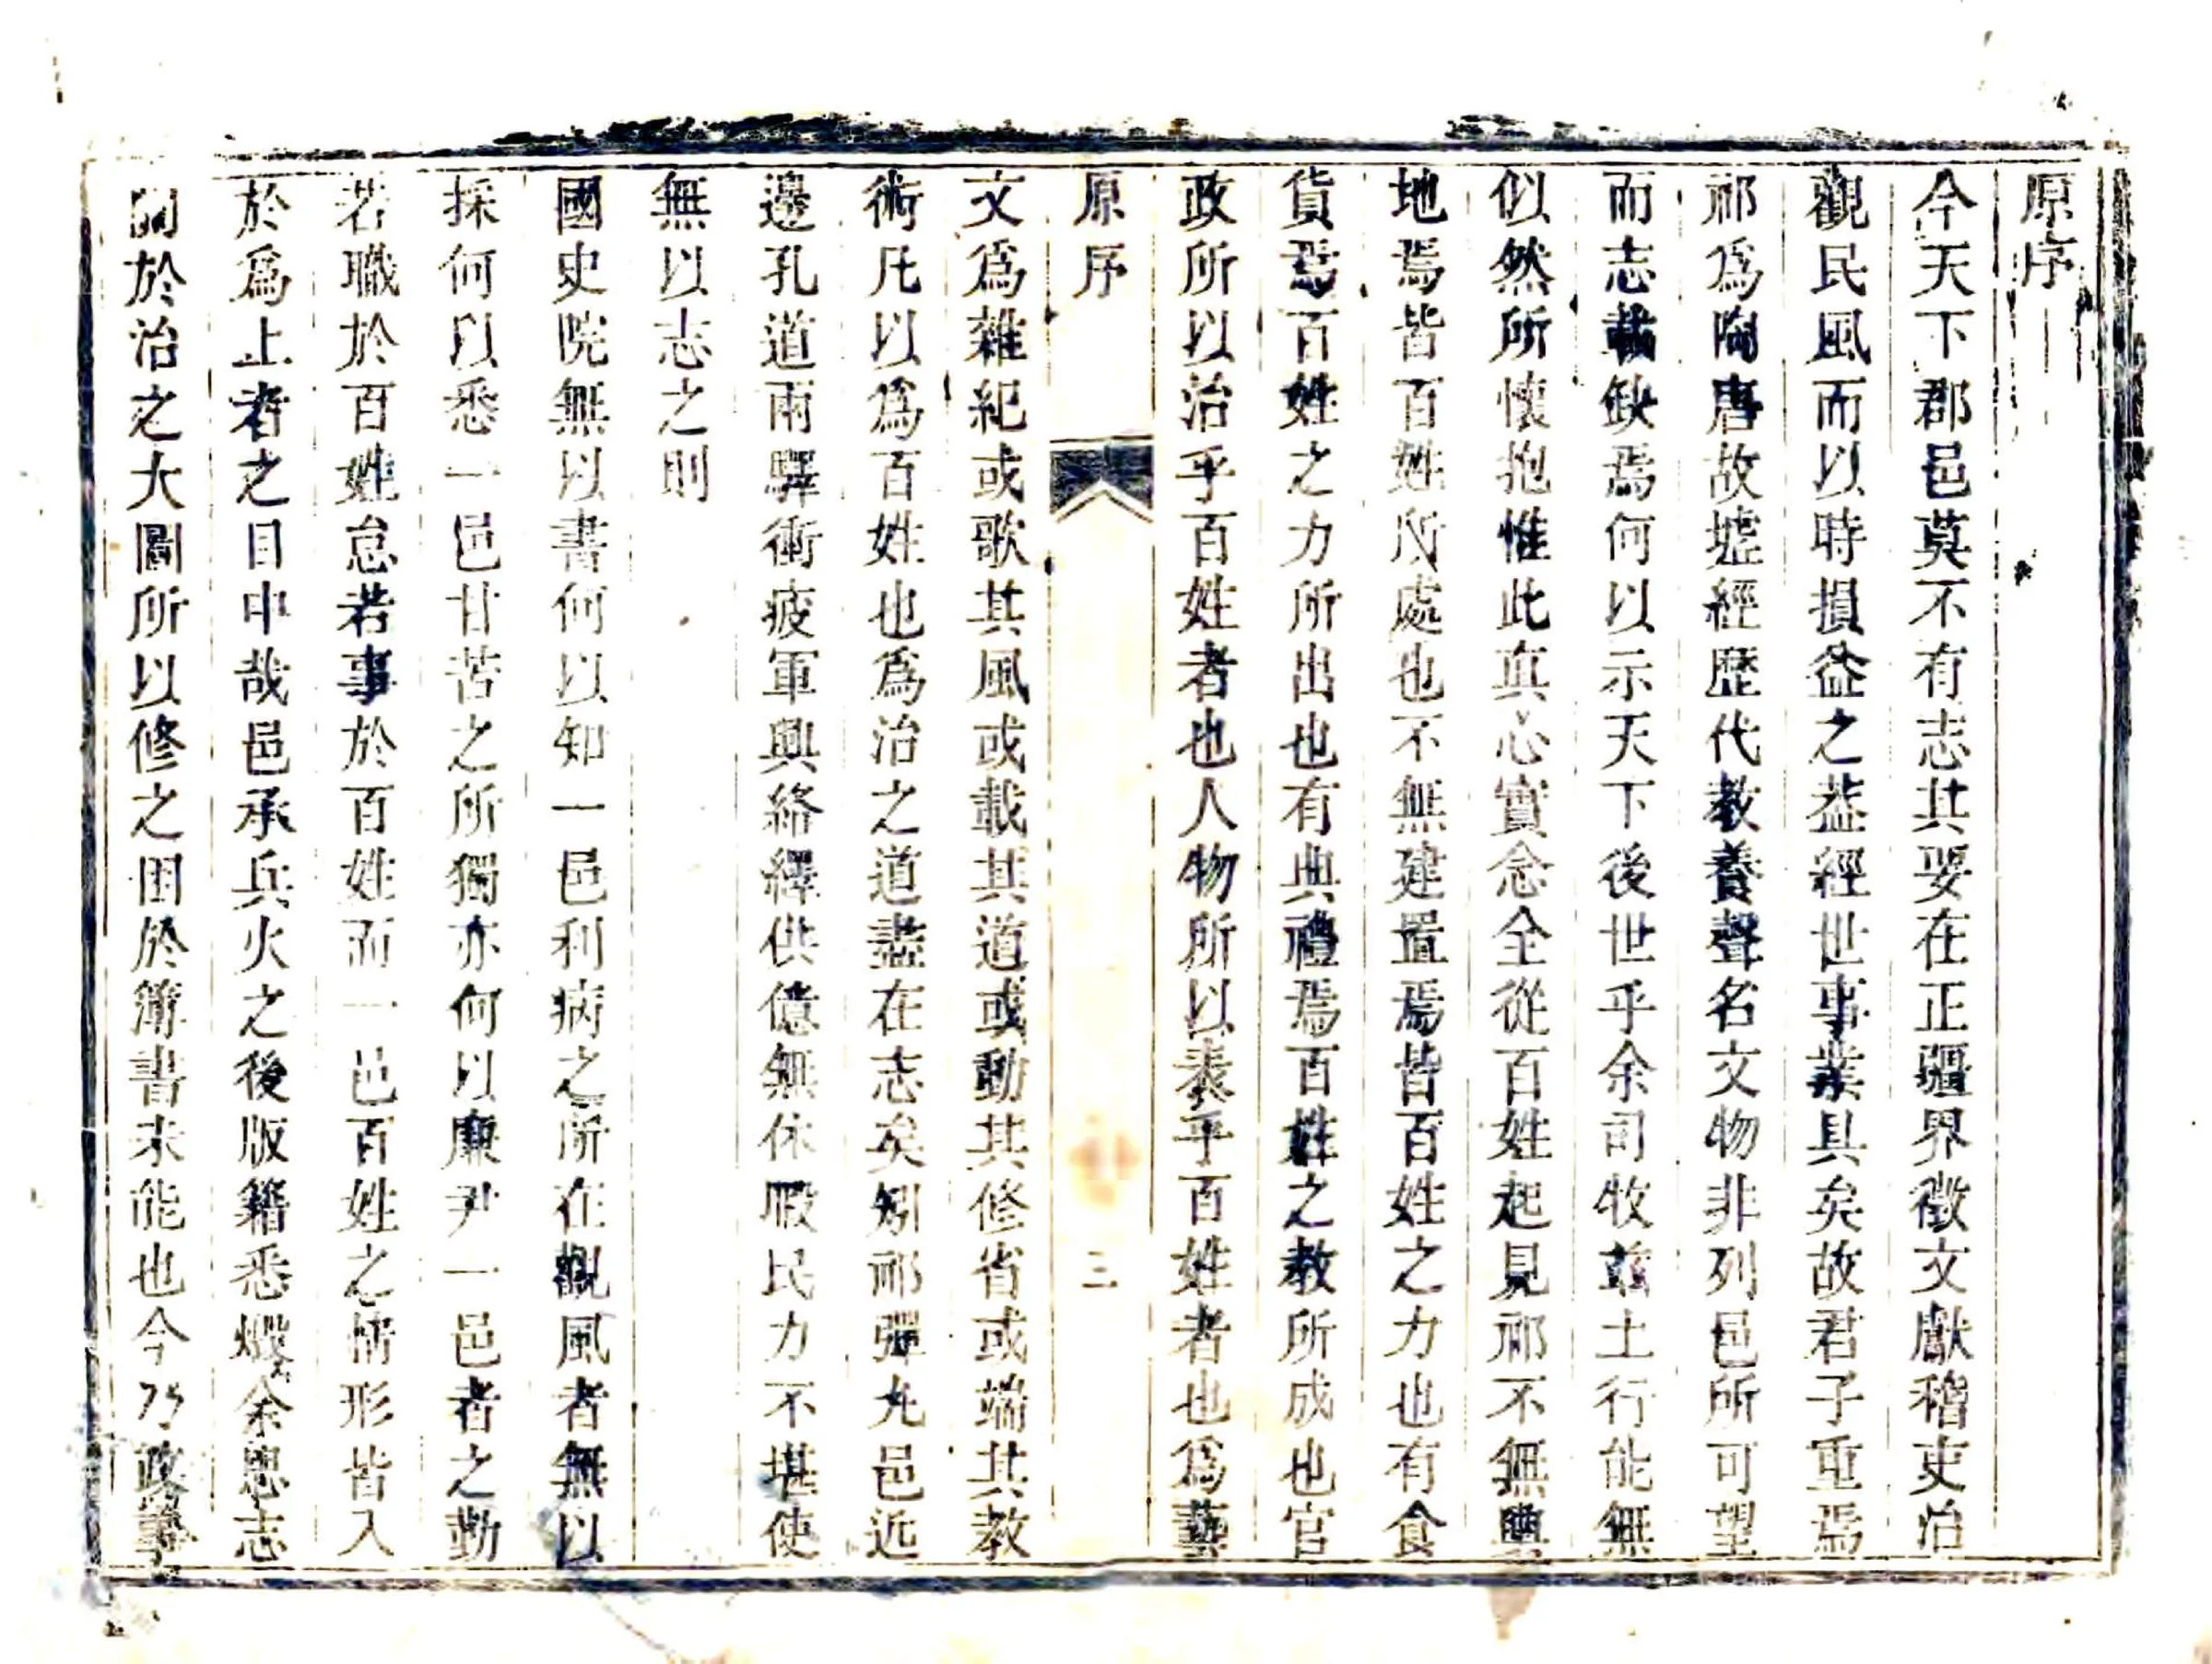 原序
今天下郡邑莫不有志其要在正疆界徵文獻稽吏治
觀民風而以時損益之葢經世事業具矣故君子重焉
祁爲陶唐故墟經歷代教養聲名文物非列邑所可望
而志載缺焉何以示天下後世乎余司牧茲土行能無
似然所懷抱惟此真心實念全從百姓起見祁不無輿
地焉皆百姓所處也不無建置焉皆百姓之力也有食
貨焉百姓之力所出也有典禮焉百姓之教所成也官
政所以治乎百姓者也人物所以表乎百姓者也爲藝
原序
三
文爲雜紀或歌其風或載其道或動其修省或端其教
術凡以爲百姓也爲治之道盡在志矣矧祁彈丸邑近
邊孔道兩驛衝疲軍興絡繹供億無休暇民力不堪使
無以志之則
國史院無以書何以知一邑利病之所在觀風者無以
採何以悉一邑甘苦之所獨亦何以廉尹一邑者之勤
若職於百姓怠若事於百姓而一邑百姓之情形皆入
於爲上者之目中哉邑承兵火之後版籍悉燬余思志
關於治之大圖所以修之困於簿書未能也今乃政事